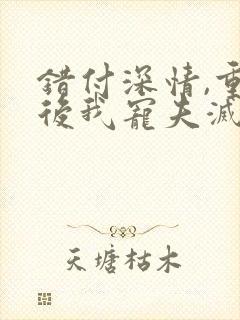 錯付深情,重
後我寵夫滅
天塘枯木